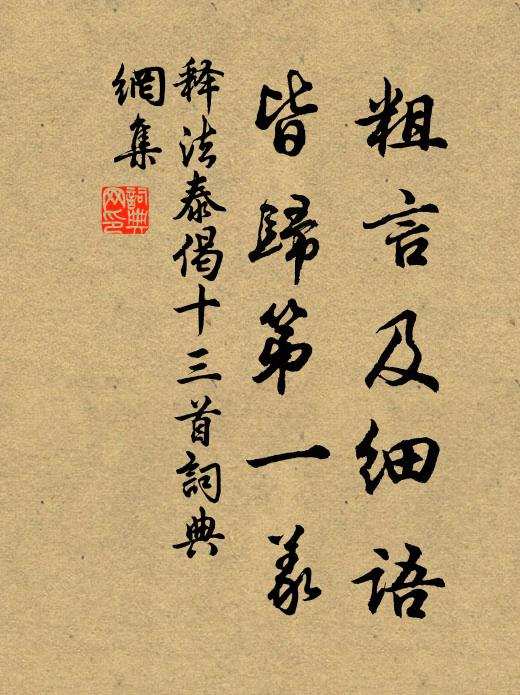 粗言及细语
皆歸第一義
释法泰偈十三首詞典
網集
詞典
网印